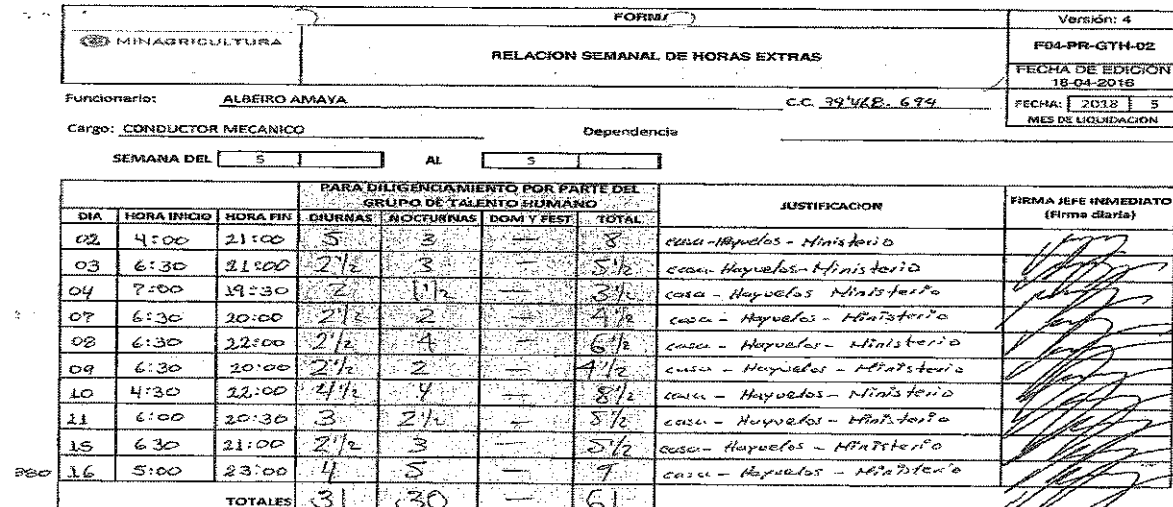 FORMA
MINAGRICULTURA
RELACION SEMANAL DE HORAS EXTRAS
Versión: 4
F04-PR-GTH-02
FECHA DE EDICIÓN
18-04-2016
Funcionario: ALBEIRO AMAYA C.C. 79'468.694
FECHA: 2018 5
MES DE LIQUIDACION
Cargo: CONDUCTOR MECANICO Dependencia
SEMANA DEL 5 AL 5
PARA DILIGENCIAMIENTO POR PARTE DEL GRUPO DE TALENTO HUMANO
DIA HORA INICIO HORA FIN DIURNAS NOCTURNAS DOM Y FEST TOTAL JUSTIFICACION FIRMA JEFE INMEDIATO (Firma diaria)
02 4:00 21:00 5 3 — 8 casa-Hayuelos-Ministerio
03 6:30 21:00 2 1/2 3 — 5 1/2 casa-Hayuelos-Ministerio
04 7:00 19:30 2 1 1/2 — 3 1/2 casa - Hayuelos Ministerio
07 6:30 20:00 2 1/2 2 — 4 1/2 casa - Hayuelos - Ministerio
08 6:30 22:00 2 1/2 4 — 6 1/2 casa - Hayuelos - Ministerio
09 6:30 20:00 2 1/2 2 — 4 1/2 casa - Hayuelos - Ministerio
10 4:30 22:00 4 1/2 4 — 8 1/2 casa - Hayuelos - Ministerio
11 6:00 20:30 3 2 1/2 — 5 1/2 casa - Hayuelos - Ministerio
15 6 30 21:00 2 1/2 3 — 5 1/2 casa - Hayuelos - Ministerio
16 5:00 23:00 4 5 — 9 casa - Hayuelos - Ministerio
TOTALES 31 30 — 61